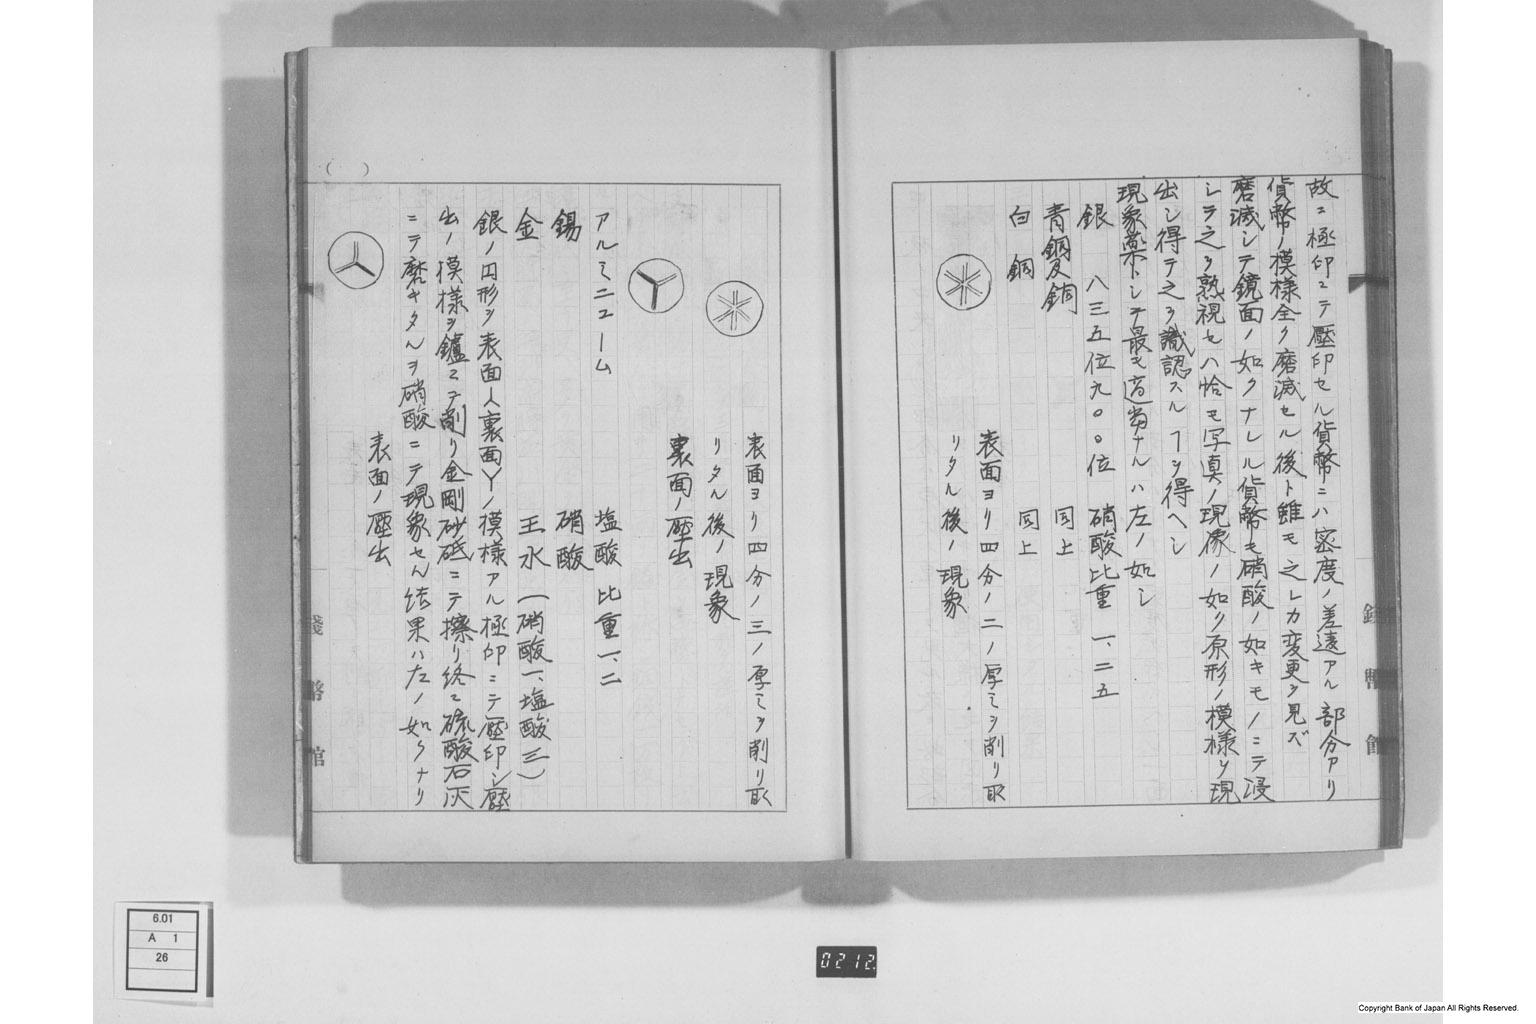 故ニ極印ニテ壓印セル貨幣ニハ密度ノ差違アル部分アリ
貨幣ノ模様全ク磨滅セル後ト雖モ之レカ変更ヲ見ズ
磨滅シテ鏡面ノ如クナレル貨幣モ硝酸ノ如キモノニテ浸
シテ之ヲ熟視セハ恰モ写真ノ現像ノ如ク原形ノ模様ヲ現
出シ得テ之ヲ識認スルヿヲ得ヘシ
現象藥トシテ最モ適当ナルハ左ノ如シ
銀 八三五位九〇〇位 硝酸比重 一、二五
青銅及銅 同上
白銅 同上
表面ヨリ四分ノ二ノ厚ミヲ削リ取
リタル後ノ現象
表面ヨリ四分ノ三ノ厚ミヲ削リ取
リタル後ノ現象
裏面ノ壓出
アルミニユーム 塩酸 比重一、二
錫 硝酸
金 王水(硝酸一、塩酸三)
銀ノ円形ヲ表面人裏面Yノ模様アル極印ニテ壓印シ壓
出ノ模様ヲ鑪ニテ削リ金剛砂砥ニテ擦リ終ニ硫酸石灰
ニテ磨キタルヲ硝酸ニテ現象セル結果ハ左ノ如クナリ
表面ノ壓出
( )
銭幣館
銭幣館
6.01
A 1
26
0212
Copyright Bank of Japan All Rights Reserved.